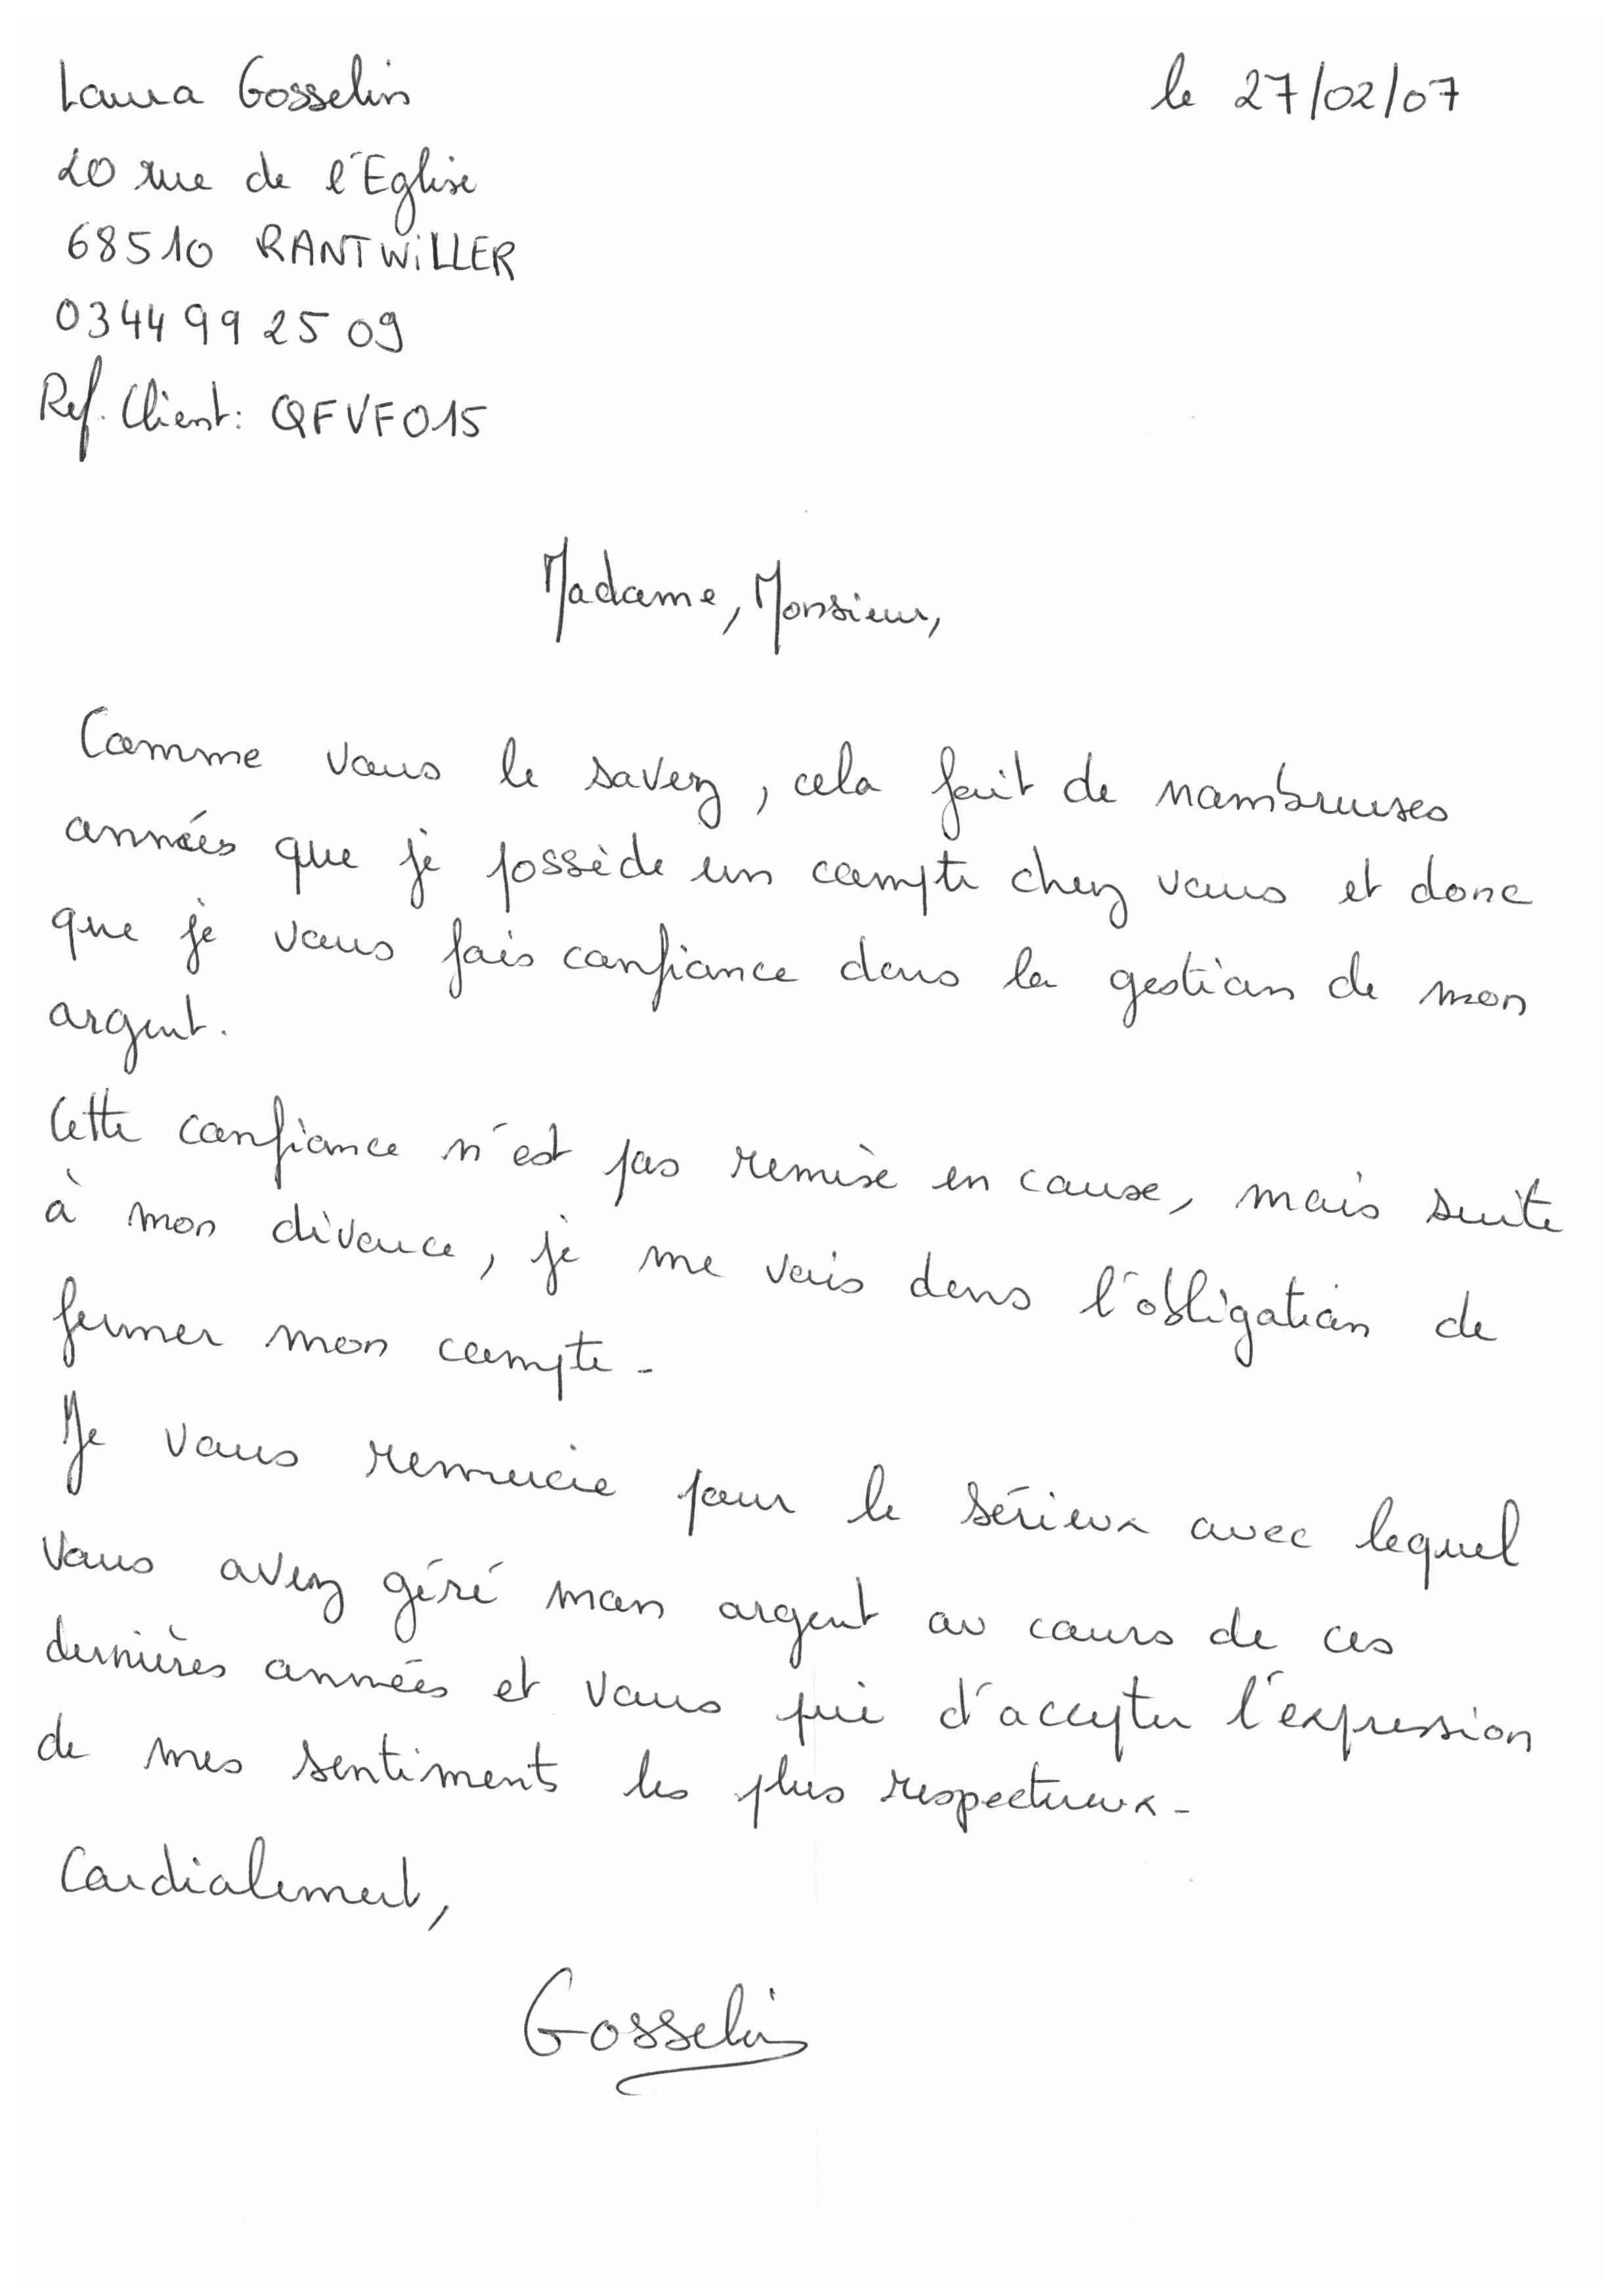 Laura Gosselin
le 27/02/07
20 rue de l'Eglise
68510 RANTWiLLER
03 44 99 25 09
Ref. Client: QFVFO15
Madame, Monsieur,
Comme vous le savez, cela fait de nombreuses
années que je possède un compte chez vous et donc
que je vous fais confiance dans la gestion de mon
argent.
Cette confiance n'est pas remise en cause, mais suite
à mon divorce, je me vois dans l'obligation de
fermer mon compte.
Je vous remercie pour le sérieux avec lequel
vous avez géré mon argent au cours de ces
dernières années et vous prie d'accepter l'expression
de mes sentiments les plus respectueux.
Cordialement,
Gosselin